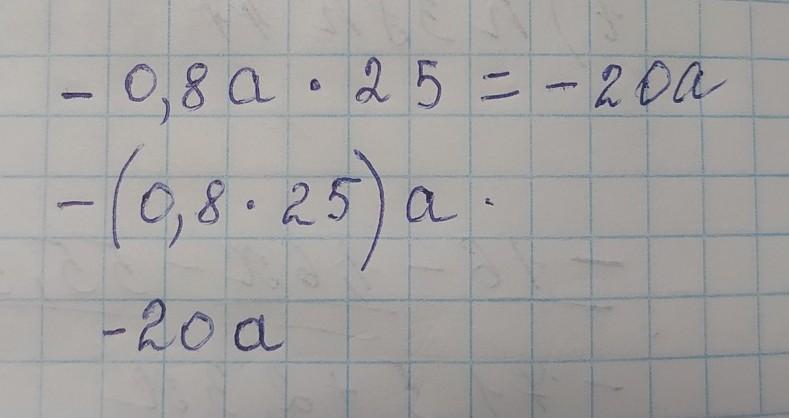 - 0,8a · 25 = - 20a
- (0,8 · 25) a ·
- 20 a